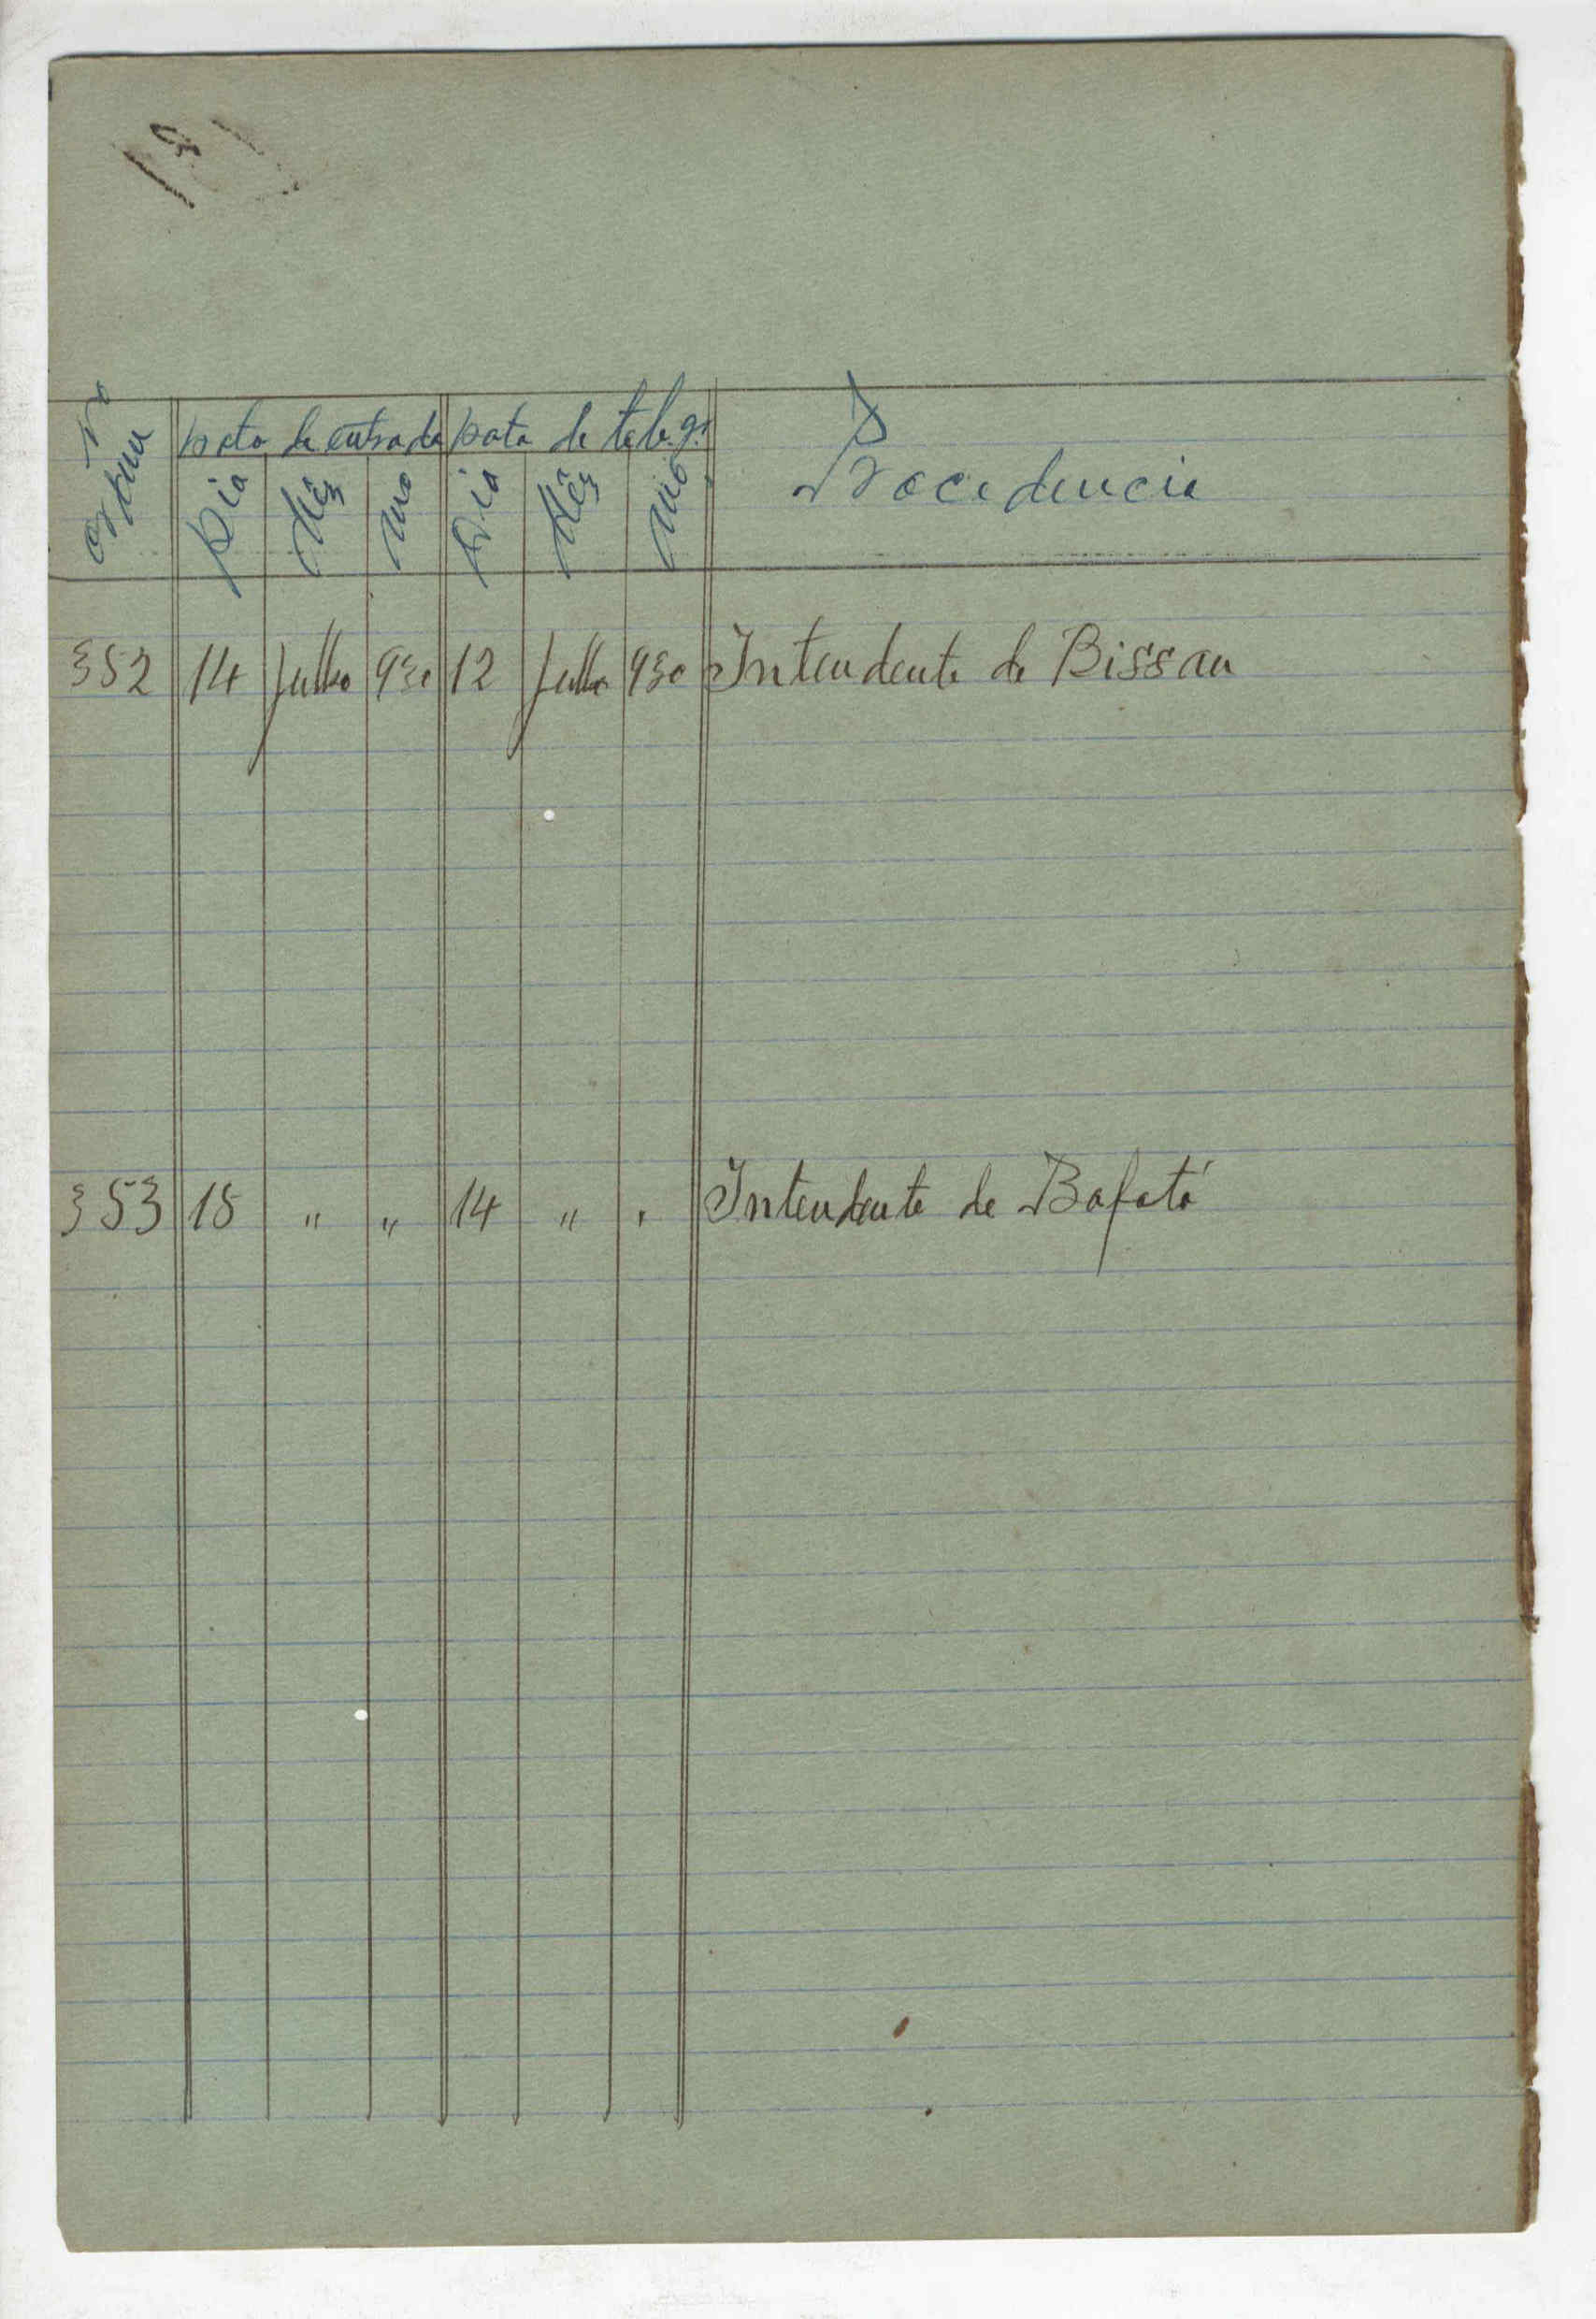 Nº Ordem
Data de entrada Data de telegr.
Dia Mês Ano Dia Mês Ano Procedencia
352 14 Julho 930 12 Julho 930 Intendente de Bissau
353 15 " " 14 " " Intendente de Bafatá